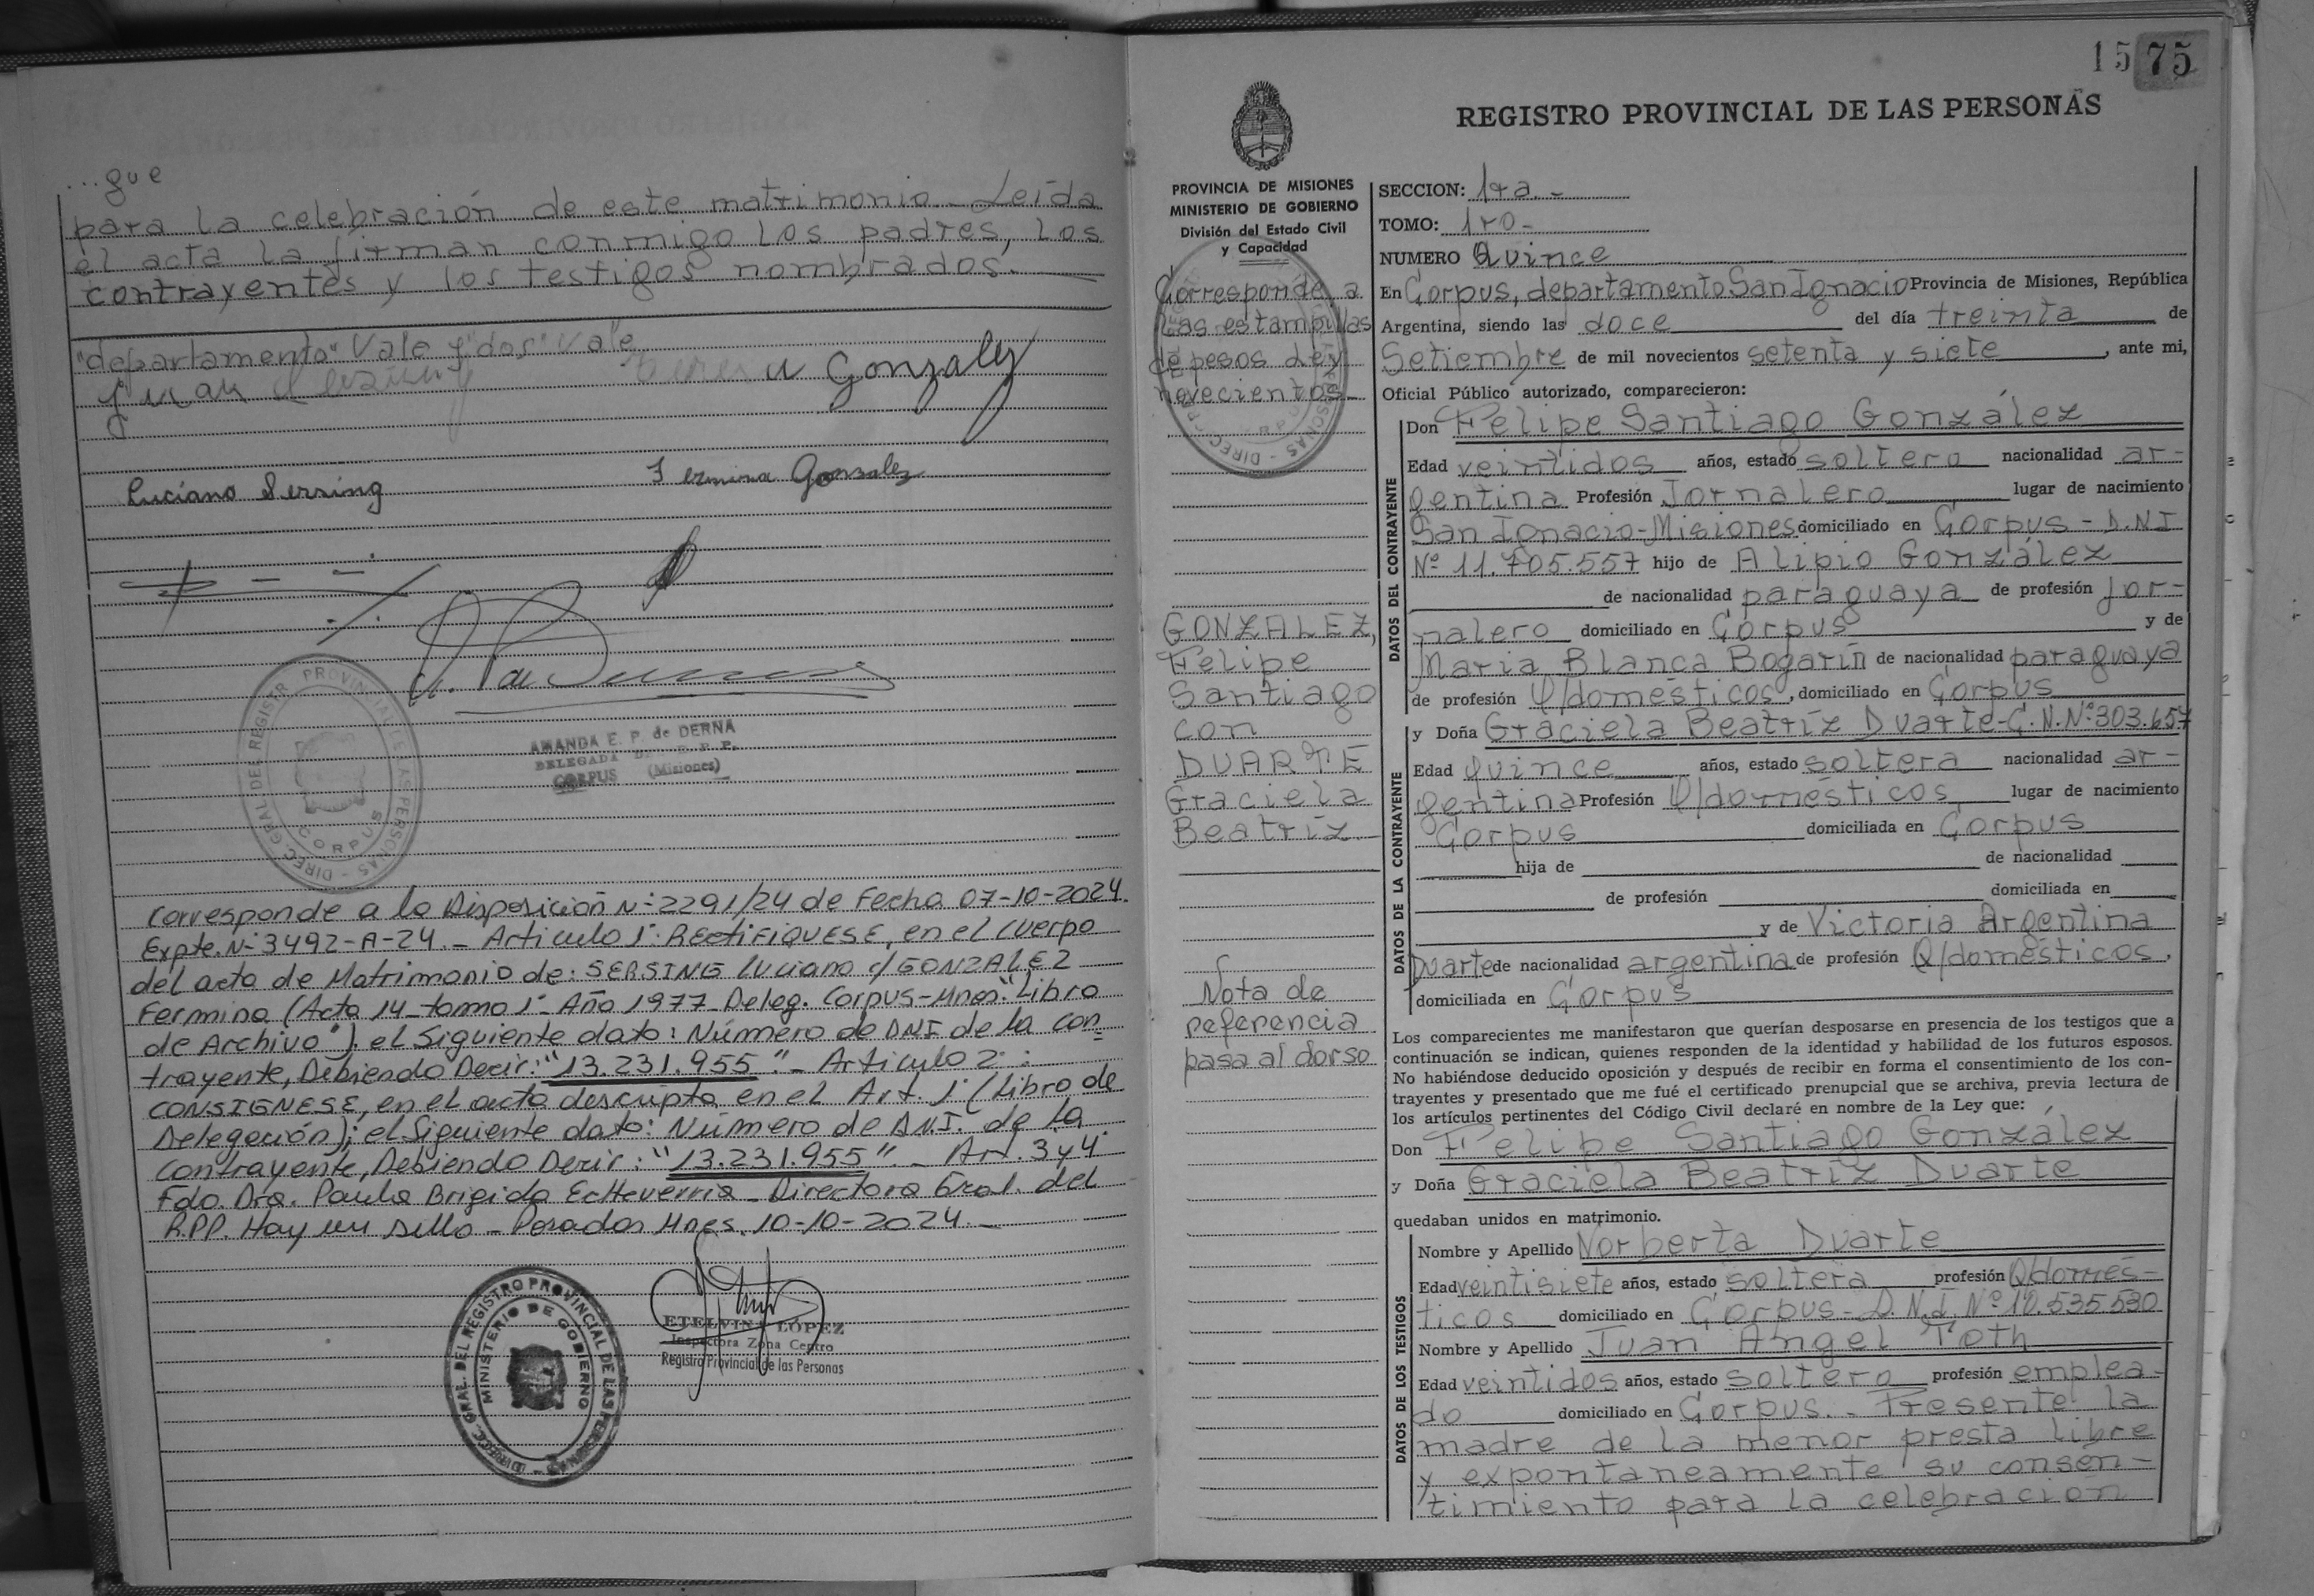 ...que
para la celebración de este matrimonio.- Leída
el acta la firman conmigo los padres, los
contrayentes y los testigos nombrados.-
"departamento" Vale y "dos" vale
Juan
Gonzalez
Luciano Sersing
Fermina Gonzalez
DIREC. GRAL. DEL REGISTR. PROVINCIAL DE LAS PERSONAS - CORPUS
AMANDA E. P. de DERNA
DELEGADA
CORPUS (Misiones)
Corresponde a la Disposición N° 2291/24 de Fecha 07-10-2024.
Expte. N° 3492-A-24.- Artículo 1° RECTIFIQUESE, en el cuerpo
del acta de Matrimonio de: SERSING Luciano c/ GONZALEZ
Fermina (Acta 14-tomo 1° Año 1977- Deleg. Corpus-Mnes. "Libro
de Archivo"), el Siguiente dato: Número de DNI de la con-
trayente, Debiendo Decir: "13.231.955".- Artículo 2°:
CONSIGNESE, en el acta descripta en el Art. 1° (Libro de
Delegación); el Siguiente dato: Número de DNI. de la
contrayente, Debiendo Decir: "13.231.955".- Art. 3y4.
Fdo. Dra. Paula Brigida Echeverria - Directora Gral. del
R.P.P. Hay un sello - Posadas Mnes. 10-10-2024.-
DIRECC. GRAL. DEL REGISTRO PROVINCIAL DE LAS PERSONAS
MINISTERIO DE GOBIERNO
ETELVINA LOPEZ
Inspectora Zona Centro
Registro Provincial de las Personas
15 75
REGISTRO PROVINCIAL DE LAS PERSONAS
PROVINCIA DE MISIONES
MINISTERIO DE GOBIERNO
División del Estado Civil
y Capacidad
Corresponde a
las estampillas
de pesos Ley
novecientos-
GONZALEZ,
Felipe
Santiago
con
DUARTE
Graciela
Beatríz
Nota de
referencia
pasa al dorso
SECCION: 1ra.-
TOMO: 1ro-
NUMERO Quince
En Corpus, departamento San Ignacio Provincia de Misiones, República
Argentina, siendo las doce del día treinta de
Setiembre de mil novecientos setenta y siete, ante mi,
Oficial Público autorizado, comparecieron:
DATOS DEL CONTRAYENTE
Don Felipe Santiago González
Edad veintidos años, estado soltero nacionalidad ar-
gentina Profesión Jornalero lugar de nacimiento
San Ignacio-Misiones domiciliado en Corpus - D.N.I
Nº 11.705.557 hijo de Alipio González
de nacionalidad paraguaya de profesión jor-
nalero domiciliado en Corpus y de
María Blanca Bogarín de nacionalidad paraguaya
de profesión Q/domésticos, domiciliado en Corpus
DATOS DE LA CONTRAYENTE
y Doña Graciela Beatríz Duarte-C.N.Nº:303.657
Edad quince años, estado soltera nacionalidad ar-
gentina Profesión Q/domésticos lugar de nacimiento
Corpus domiciliada en Corpus
hija de de nacionalidad
de profesión domiciliada en
y de Victoria Argentina
Duarte de nacionalidad argentina de profesión Q/domésticos,
domiciliada en Corpus
Los comparecientes me manifestaron que querían desposarse en presencia de los testigos que a
continuación se indican, quienes responden de la identidad y habilidad de los futuros esposos.
No habiéndose deducido oposición y después de recibir en forma el consentimiento de los con-
trayentes y presentado que me fué el certificado prenupcial que se archiva, previa lectura de
los artículos pertinentes del Código Civil declaré en nombre de la Ley que:
Don Felipe Santiago González
y Doña Graciela Beatríz Duarte
quedaban unidos en matrimonio.
DATOS DE LOS TESTIGOS
Nombre y Apellido Norberta Duarte
Edad veintisiete años, estado soltera profesión Q/domés-
ticos domiciliado en Corpus- D.N.I. Nº 12.535.530
Nombre y Apellido Juan Angel Toth
Edad veintidos años, estado soltero profesión emplea-
do domiciliado en Corpus.- Presente la
madre de la menor presta libre
y expontaneamente su consen-
timiento para la celebración